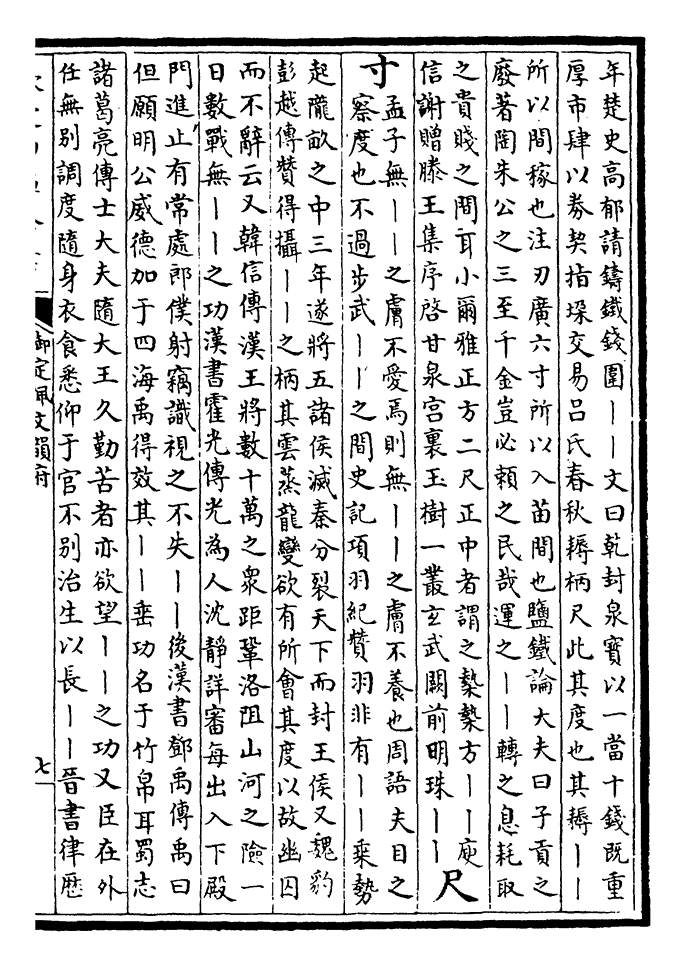 年楚史高郁請鑄鐵錢圍丨丨文曰乾封泉寶以一當十錢既重
厚市肆以券契指垜交易吕氏春秋耨柄尺此其度也其耨丨丨
所以間稼也注刃廣六寸所以入苗間也鹽鐵論大夫曰子貢之
廢著陶朱公之三至千金豈必賴之民哉運之丨丨轉之息耗取
之貴賤之間耳小爾雅正方二尺正中者謂之槷槷方丨丨庾
信謝贈滕王集序啓甘泉宫裏玉樹一叢玄武闕前明珠丨丨尺
寸孟子無丨丨之膚不愛焉則無丨丨之膚不養也周語夫目之
察度也不過步武丨丨之間史記項羽紀贊羽非有丨丨乗勢
起隴畝之中三年遂將五諸侯滅秦分裂天下而封王侯又魏豹
彭越傳贊得攝丨丨之柄其雲蒸龍變欲有所會其度以故幽囚
而不辭云又韓信傳漢王將數十萬之衆距鞏洛阻山河之險一
日數戰無丨丨之功漢書霍光傳光為人沈靜詳審每出入下殿
門進止有常處郎僕射竊識視之不失丨丨後漢書鄧禹傳禹曰
但願明公威德加于四海禹得效其丨丨垂功名于竹帛耳蜀志
諸葛亮傳士大夫隨大王久勤苦者亦欲望丨丨之功又臣在外
任無别調度隨身衣食悉仰于官不别治生以長丨丨晉書律歴
御定佩文韻府
七